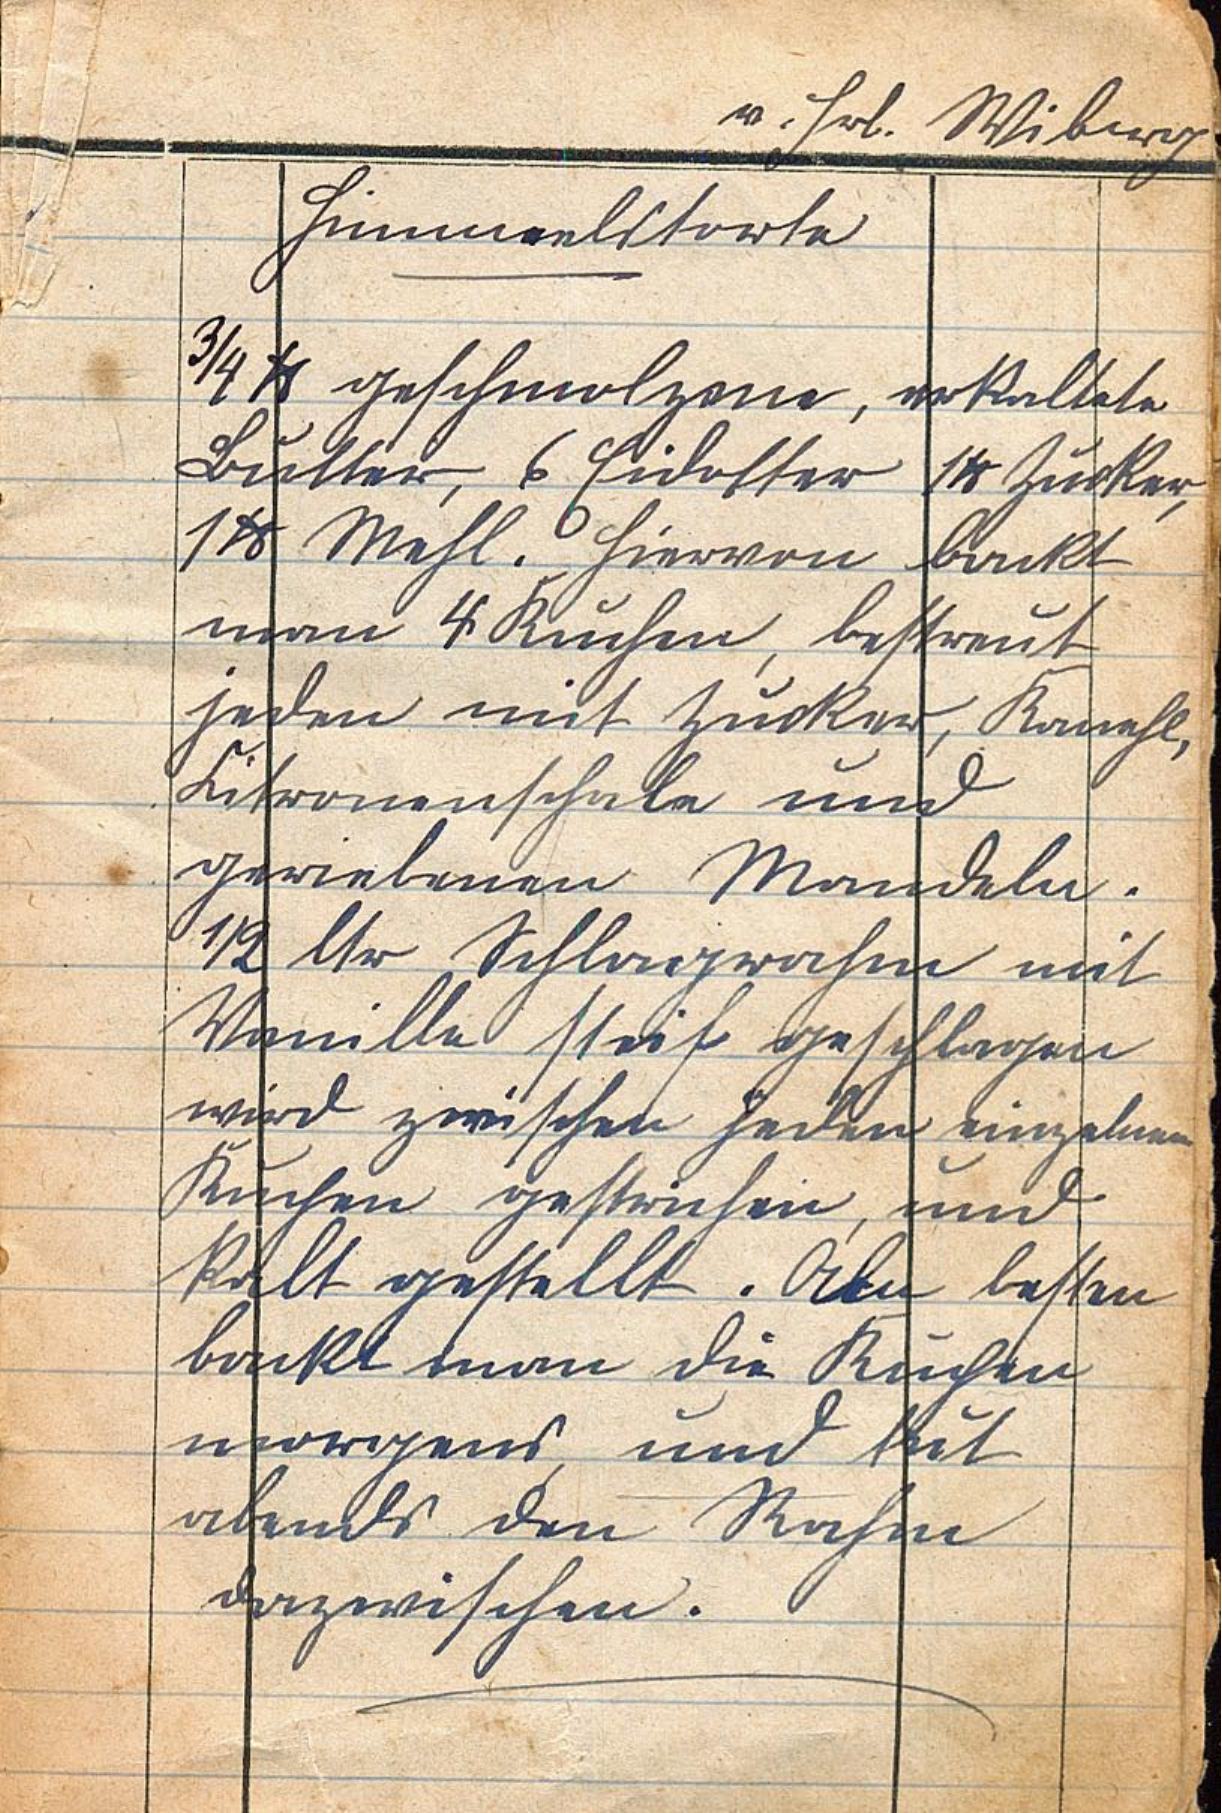 v. Frl. Wiberg
Himmelstorte
3/4 ℔ geschmolzene, erkaltete
Butter, 6 Eidotter 1 ℔ Zucker,
1 ℔ Mehl. Hiervon backt
man 4 Kuchen, bestreut
jeden mit Zucker, Kanehl,
Citronenschale und
geriebenen Mandeln.
1/2 ltr Schlagrahm mit
Vanille steif geschlagen
wird zwischen jeden einzelnen
Kuchen gestrichen, und
kalt gestellt. Am besten
backt man die Kuchen
morgens, und tut
abends den Rahm
dazwischen.